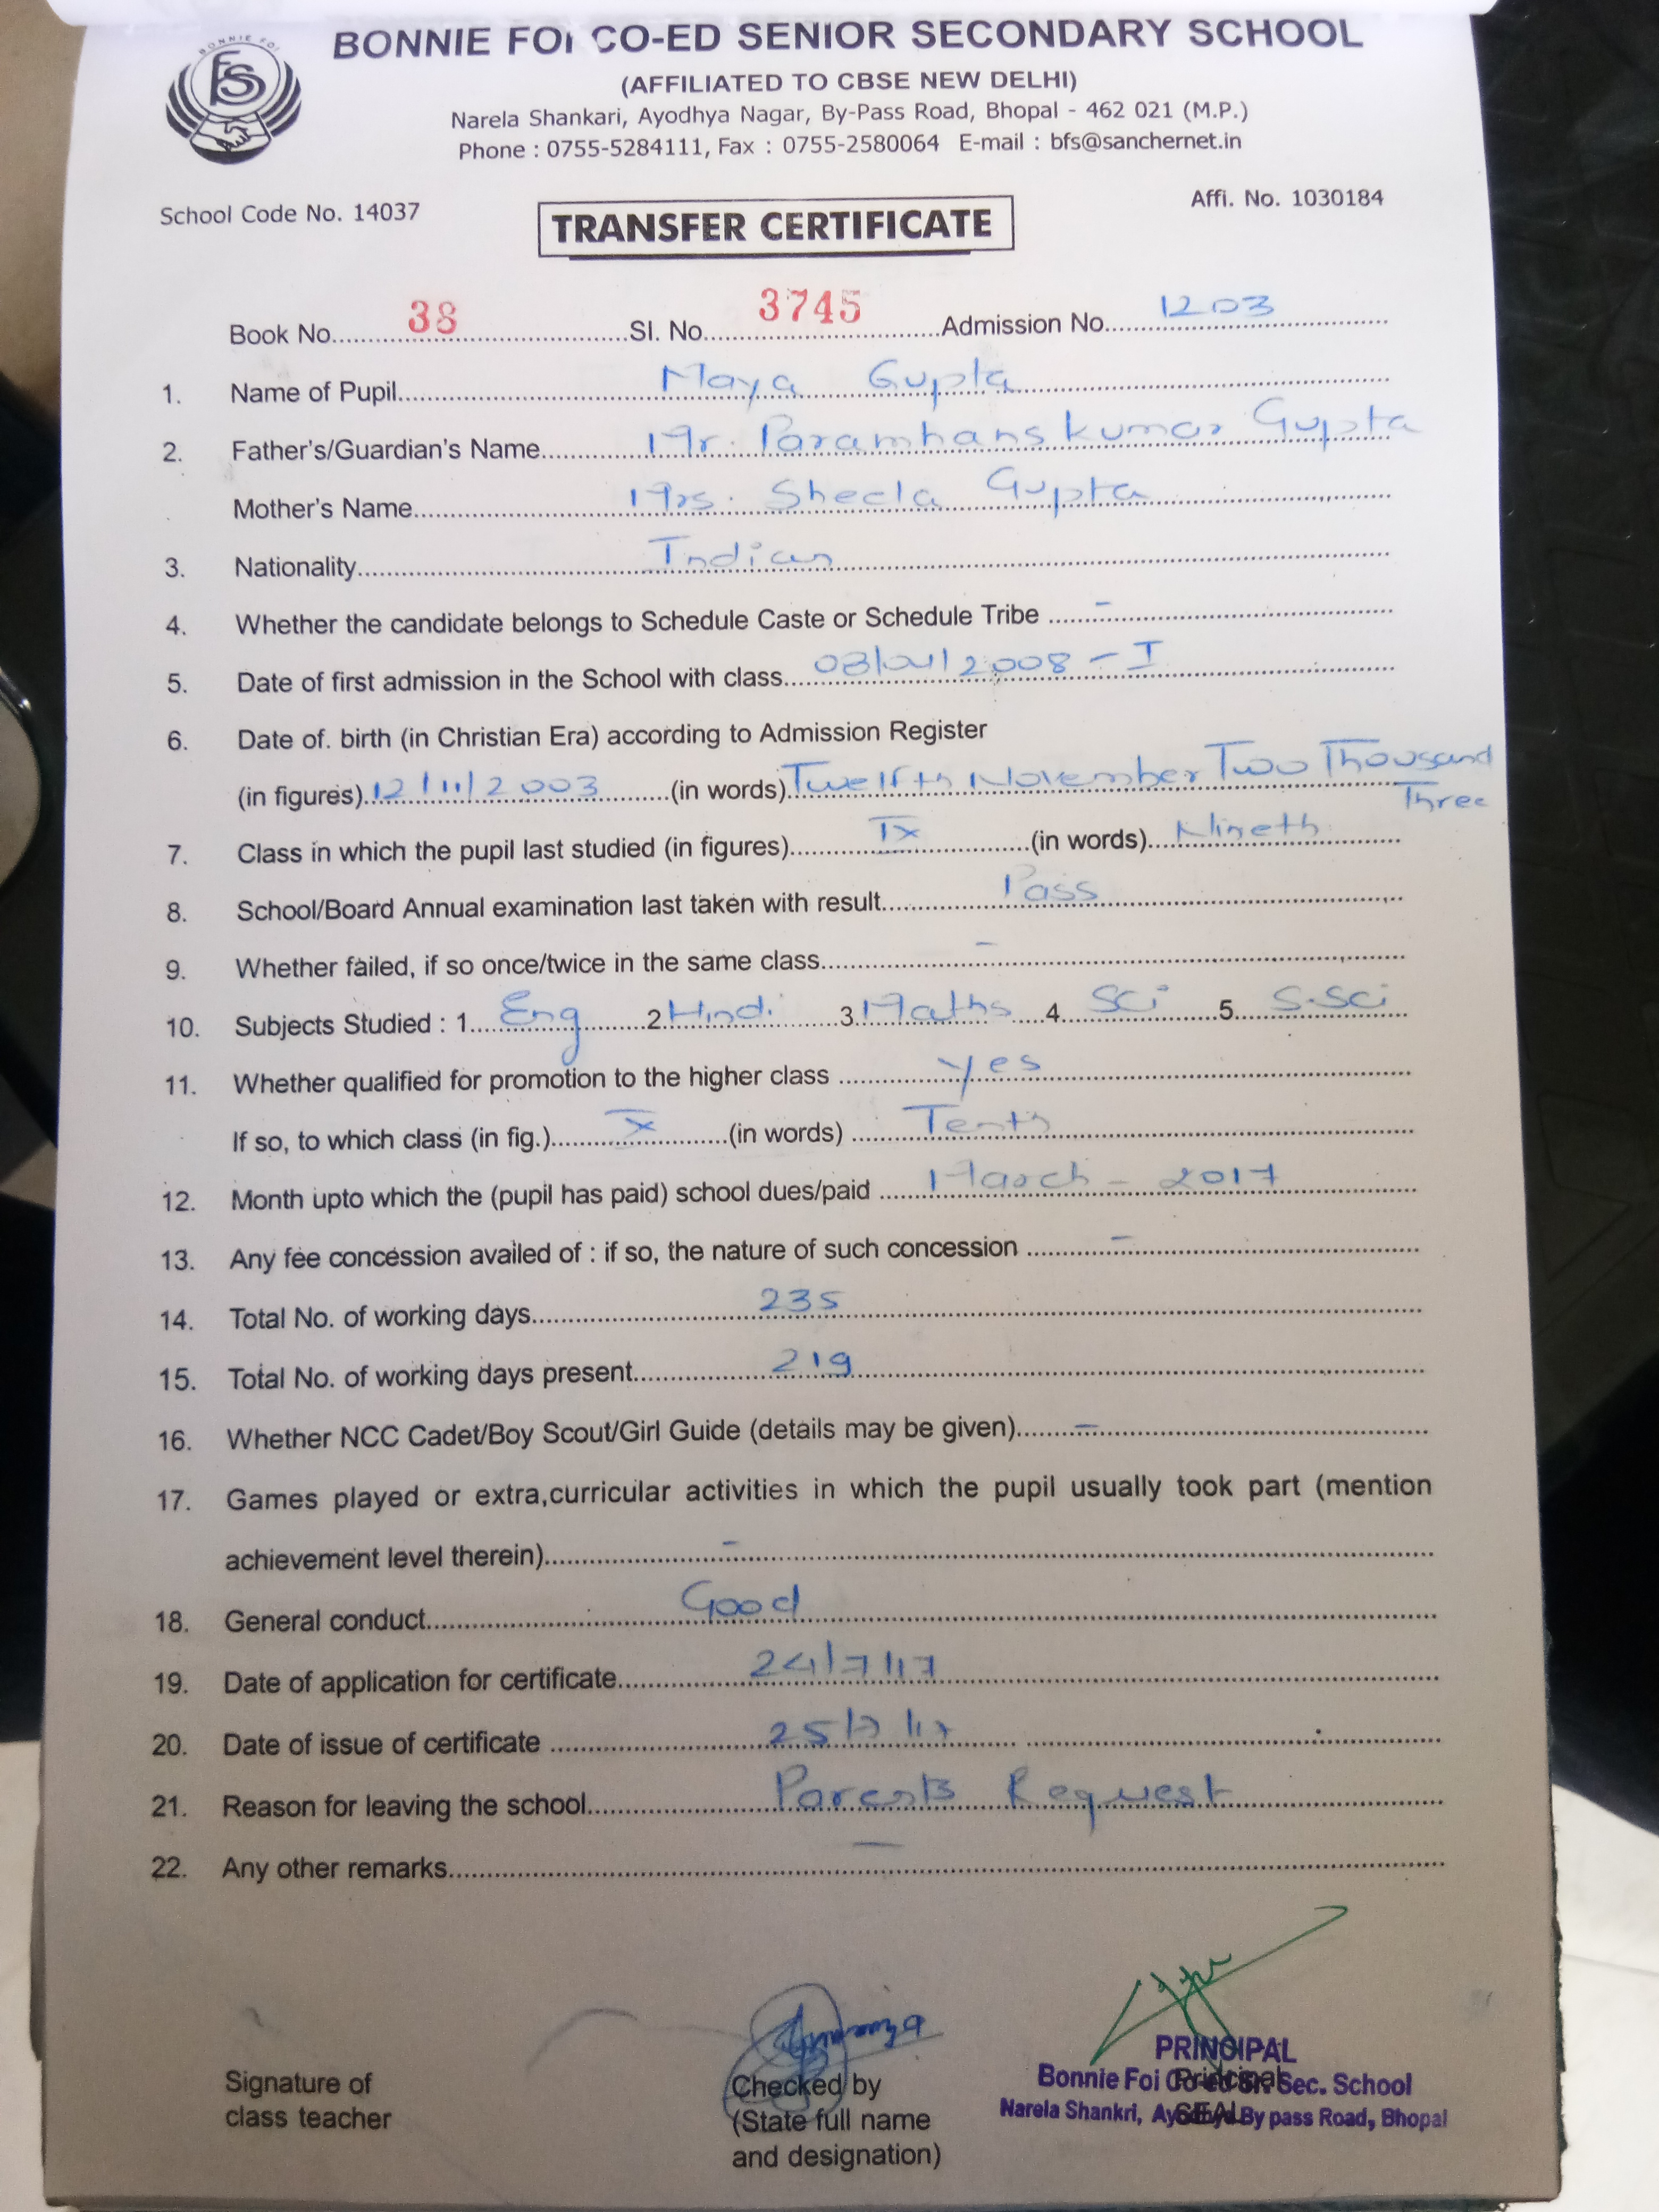 BONNIE FOI
FS
BONNIE FOI CO-ED SENIOR SECONDARY SCHOOL
(AFFILIATED TO CBSE NEW DELHI)
Narela Shankari, Ayodhya Nagar, By-Pass Road, Bhopal - 462 021 (M.P.)
Phone : 0755-5284111, Fax : 0755-2580064 E-mail : bfs@sanchernet.in
School Code No. 14037
Affi. No. 1030184
TRANSFER CERTIFICATE
Book No. 38 Sl. No. 3745 Admission No. 1203
1. Name of Pupil Maya Gupta
2. Father's/Guardian's Name Mr. Paramhans kumar Gupta
Mother's Name Mrs. Sheela Gupta
3. Nationality Indian
4. Whether the candidate belongs to Schedule Caste or Schedule Tribe -
5. Date of first admission in the School with class 03/04/2008 - I
6. Date of. birth (in Christian Era) according to Admission Register
(in figures) 12/11/2003 (in words) Twelfth November Two Thousand
Three
7. Class in which the pupil last studied (in figures) IX (in words) Nineth
8. School/Board Annual examination last taken with result Pass
9. Whether failed, if so once/twice in the same class -
10. Subjects Studied : 1. Eng 2 Hindi 3 Maths 4. Sci 5. S.Sci
11. Whether qualified for promotion to the higher class yes
If so, to which class (in fig.) X (in words) Tenth
12. Month upto which the (pupil has paid) school dues/paid March - 2017
13. Any fee concession availed of : if so, the nature of such concession -
14. Total No. of working days 235
15. Total No. of working days present 219
16. Whether NCC Cadet/Boy Scout/Girl Guide (details may be given) -
17. Games played or extra,curricular activities in which the pupil usually took part (mention
achievement level therein) -
18. General conduct Good
19. Date of application for certificate 24/7/17
20. Date of issue of certificate 25/7/17
21. Reason for leaving the school Parents Request
22. Any other remarks -
Signature of
class teacher
Checked by
(State full name
and designation)
Principal
SEAL
PRINCIPAL
Bonnie Foi Co-ed Sr. Sec. School
Narela Shankri, Ayodhya By pass Road, Bhopal